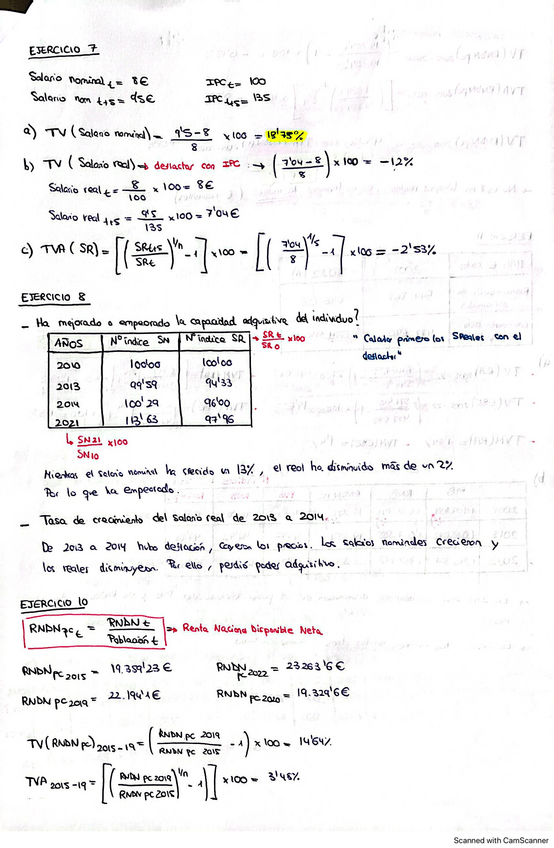 EJERCICIO 7
Salario nominal t = 8€ IPC t = 100
Salario nom t+5 = 9'5€ IPC t+5 = 135
a) TV (Salario nominal) = 9'5-8/8 x100 = 18'75%
b) TV (Salario real) → deflactar con IPC → (7'04-8/8) x 100 = -12%
Salario real t = 8/100 x 100 = 8€
Salario real t+5 = 9'5/135 x100 = 7'04€
c) TVA (SR) = [(SRt+5/SRt)^1/n - 1] x100 = [(7'04/8)^1/5 - 1] x100 = -2'53%
EJERCICIO 8
- Ha mejorado o empeorado la capacidad adquisitiva del individuo?
AÑOS Nº índice SN Nº índice SR → SR t/SR 0 x100
"Calcular primero los SReales con el
2010 100'00 100'00
deflactor"
2013 99'59 94'33
2014 100'29 96'00
2021 113'63 97'96
↳ SN21/SN10 x100
Mientras el salario nominal ha crecido un 13%, el real ha disminuido más de un 2%
Por lo que ha empeorado.
- Tasa de crecimiento del salario real de 2013 a 2014.
De 2013 a 2014 hubo deflación, cayeron los precios. Los salarios nominales crecieron y
los reales disminuyeron. Por ello, perdió poder adquisitivo.
EJERCICIO 10
RNDNpc t = RNDN t/Población t → Renta Naciona Disponible Neta
RNDNpc 2015 = 19.359'23€ RNDNpc 2022 = 23263'6€
RNDN pc 2019 = 22.194'1€ RNDN pc 2020 = 19.329'6€
TV(RNDN pc) 2015-19 = (RNDN pc 2019/RNDN pc 2015 - 1) x 100 = 14'64%
TVA 2015-19 = [(RNDN pc 2019/RNDN pc 2015)^1/n - 1] x100 = 3'48%
Scanned with CamScanner